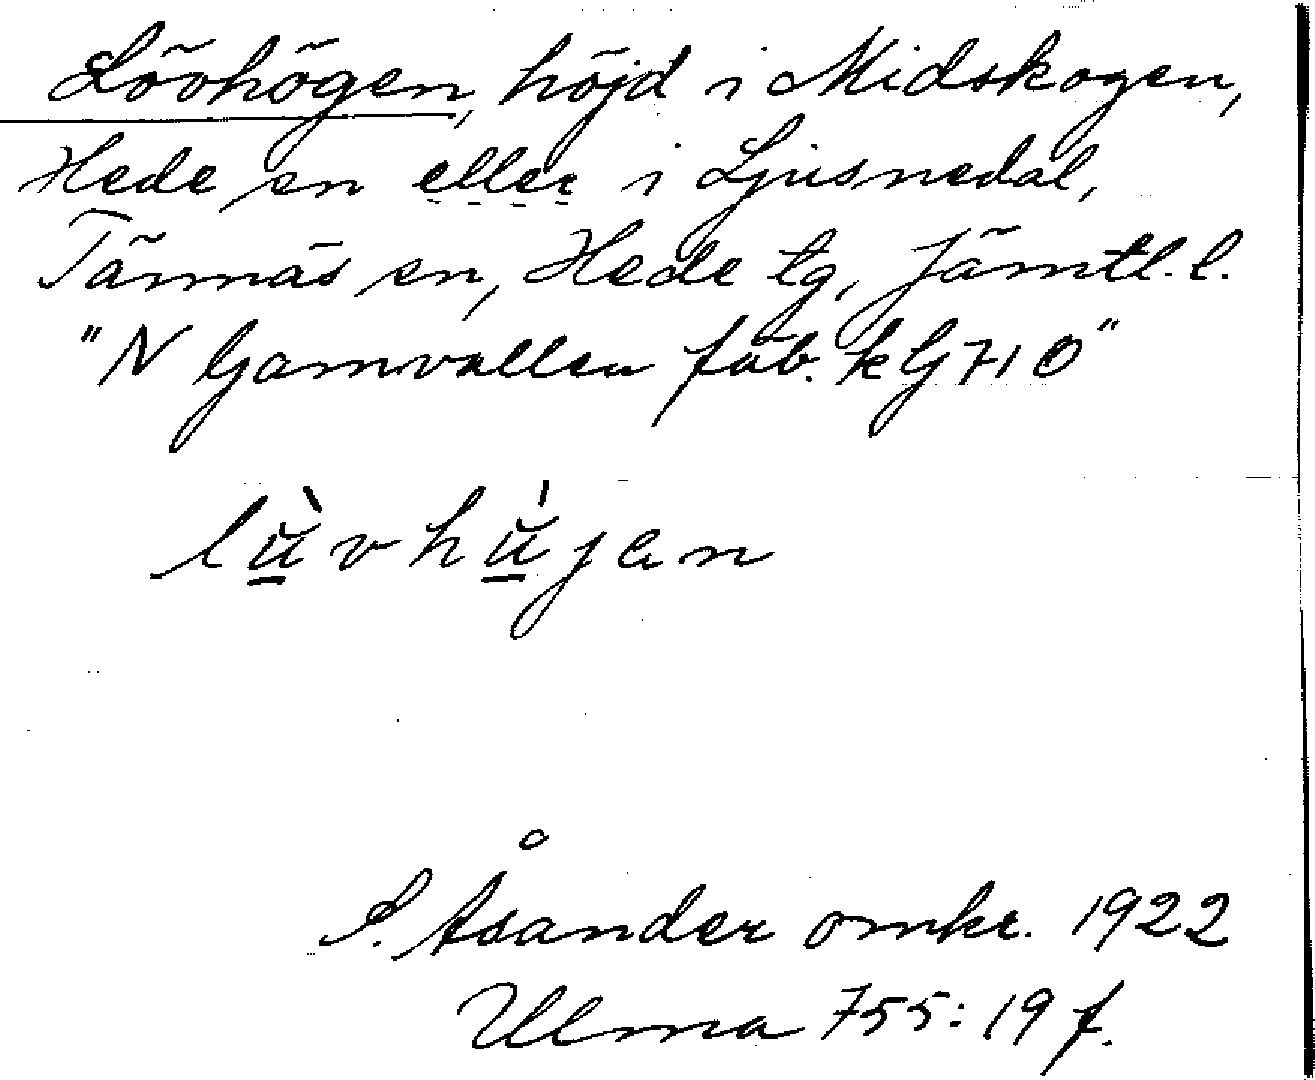 Lövhögen, höjd i Midskogen,
Hede sn eller i Ljusnedal,
Tännäs sn, Hede tg, Jämtl. l.
"N Gamvallen fäb. k G710"
lǜvhǘjen
S. Åsander omkr. 1922
Ulma 755:19 f.